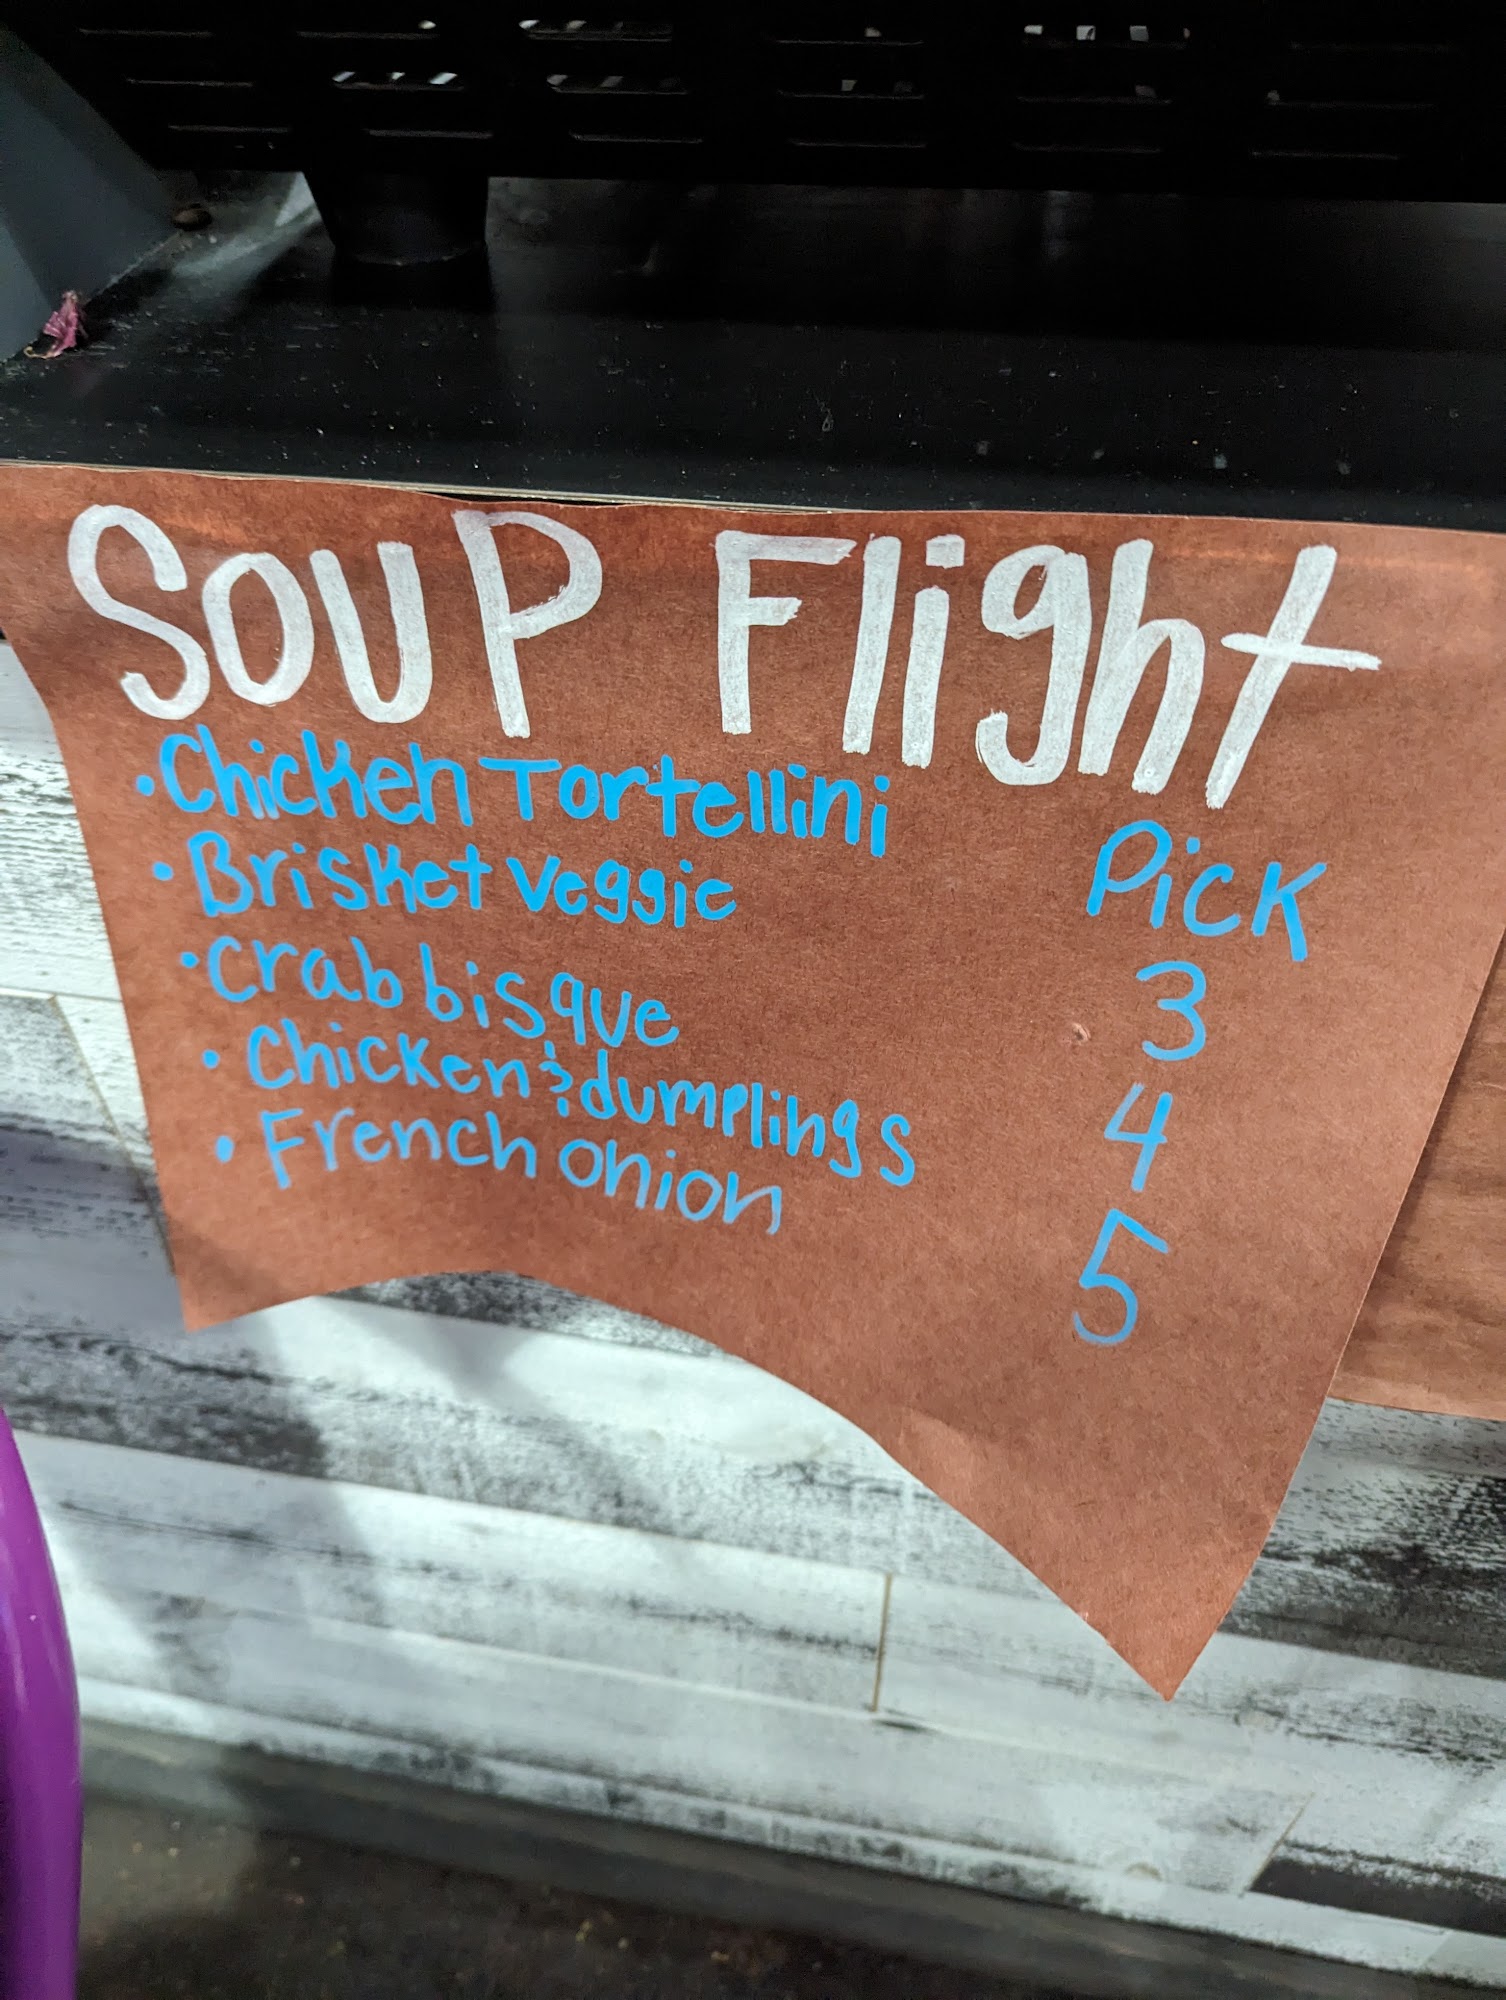 Soup Flight
• Chicken Tortellini
• Brisket Veggie
• Crab bisque
• Chicken & dumplings
• French Onion
Pick
3
4
5